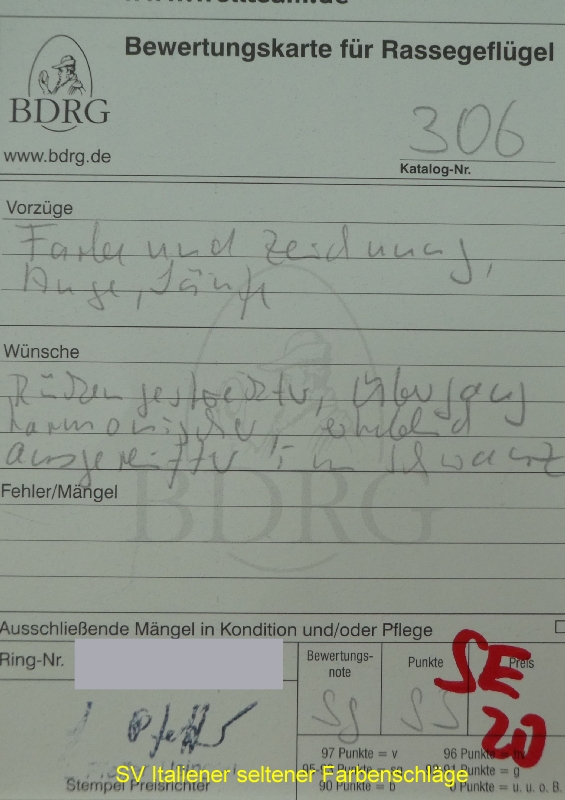 Bewertungskarte für Rassegeflügel
BDRG
www.bdrg.de
306
Katalog-Nr.
Vorzüge
Farbe und Zeichnung,
Auge, Läufe
Wünsche
Rücken gestreckter, Übergang
harmonischer,
ausgereifter im Schwanz
Fehler/Mängel
BDRG
Ausschließende Mängel in Kondition und/oder Pflege
Ring-Nr.
Bewertungs-
note
Punkte
Preis
Sg
SE
20
97 Punkte = v
96 Punkte =
90 Punkte = b
Punkte = g
0 Punkte = u. u. o. B.
SV Italiener seltener Farbenschläge
Stempel Preisrichter